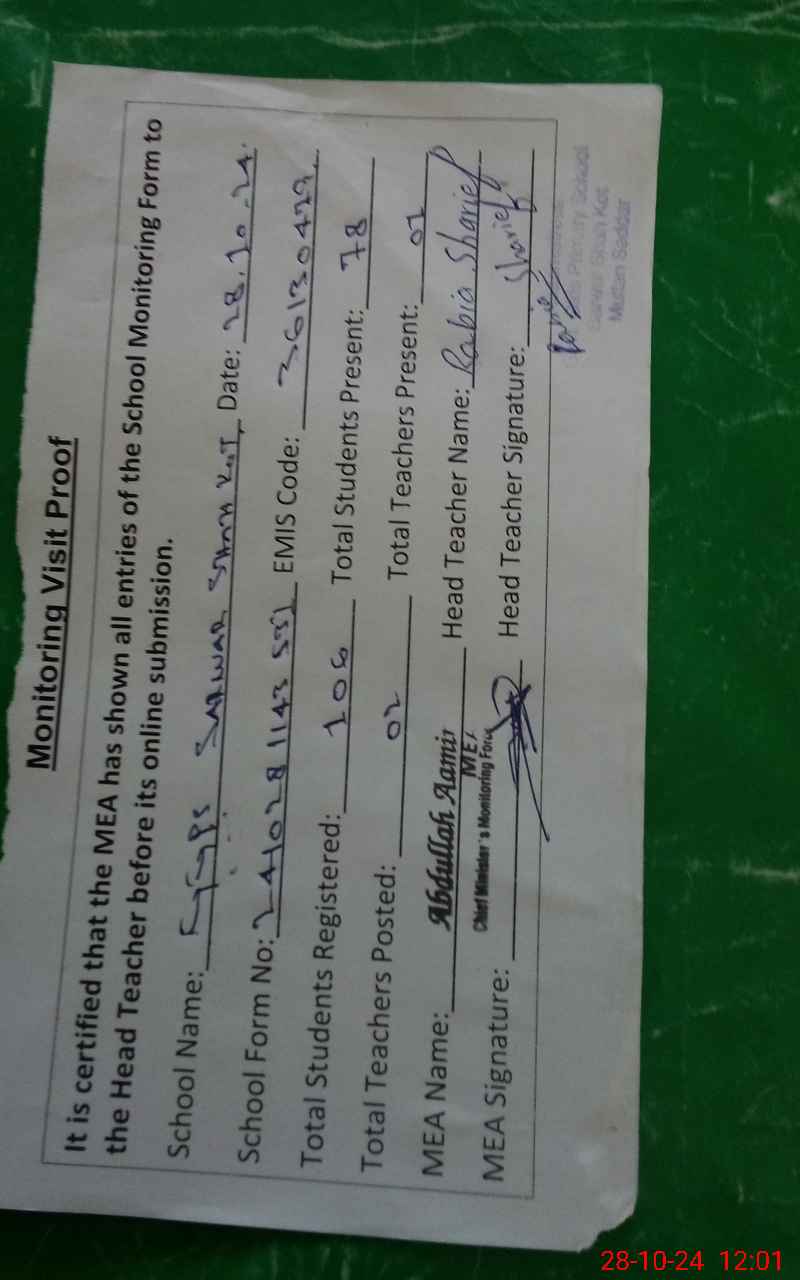 Monitoring Visit Proof
It is certified that the MEA has shown all entries of the School Monitoring Form to
the Head Teacher before its online submission.
School Name: SARWAR SHAH KOT Date: 28.10.24.
School Form No: 241028 1143 551 EMIS Code: 36130422
Total Students Registered: 106 Total Students Present: 78
Total Teachers Posted: 02 Total Teachers Present: 02
MEA Name: Abdullah Aamir Head Teacher Name: Rabia Sharief
MEA
Chief Minister's Monitoring Force
MEA Signature: Head Teacher Signature: Sharief
Primary School
Sarwar Shah Kot
Multan Saddar
28-10-24 12:01